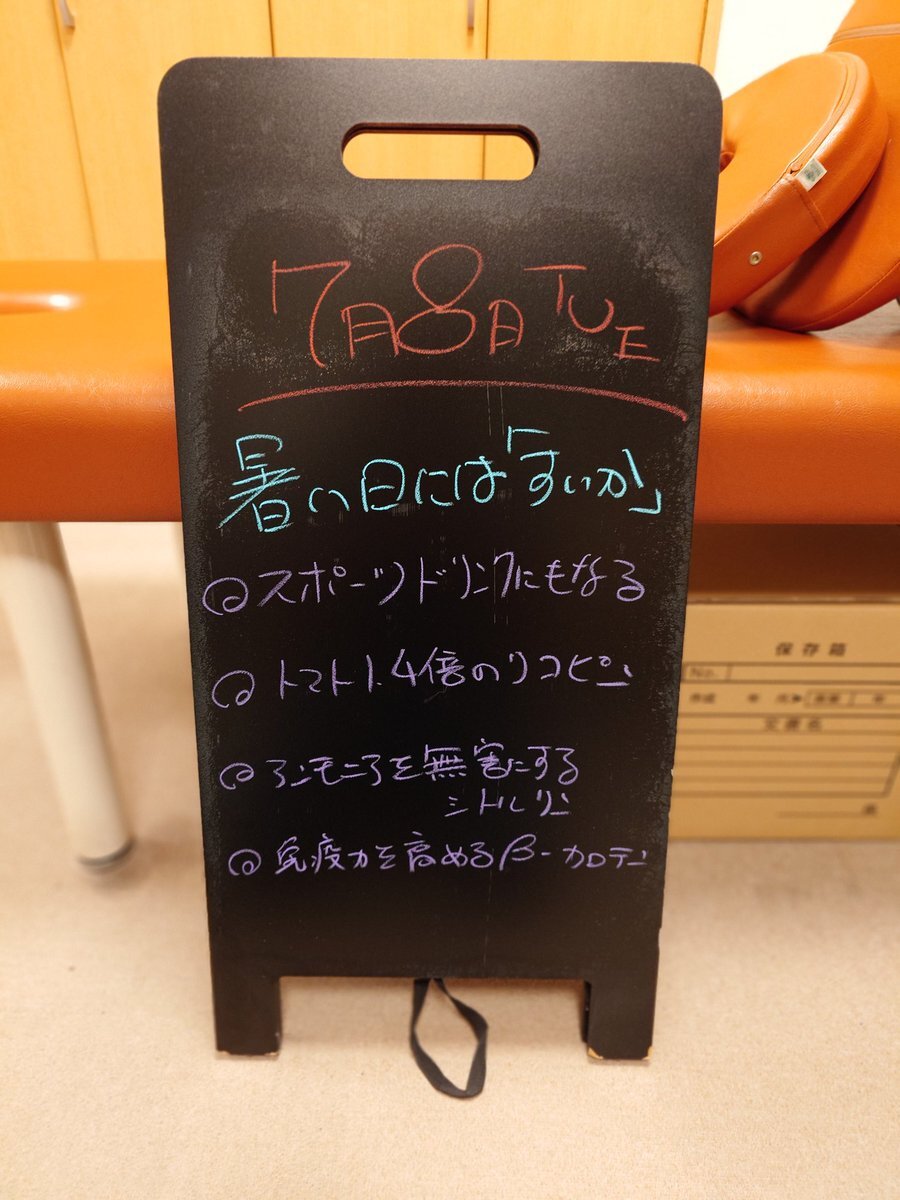 7月8日 TUE
暑い日には「すいか」
◎スポーツドリンクにもなる
◎トマト1.4倍のリコピン
◎アンモニアを無害にする
シトルリン
◎免疫力を高めるβ-カロテン
保存箱
No.
文書名